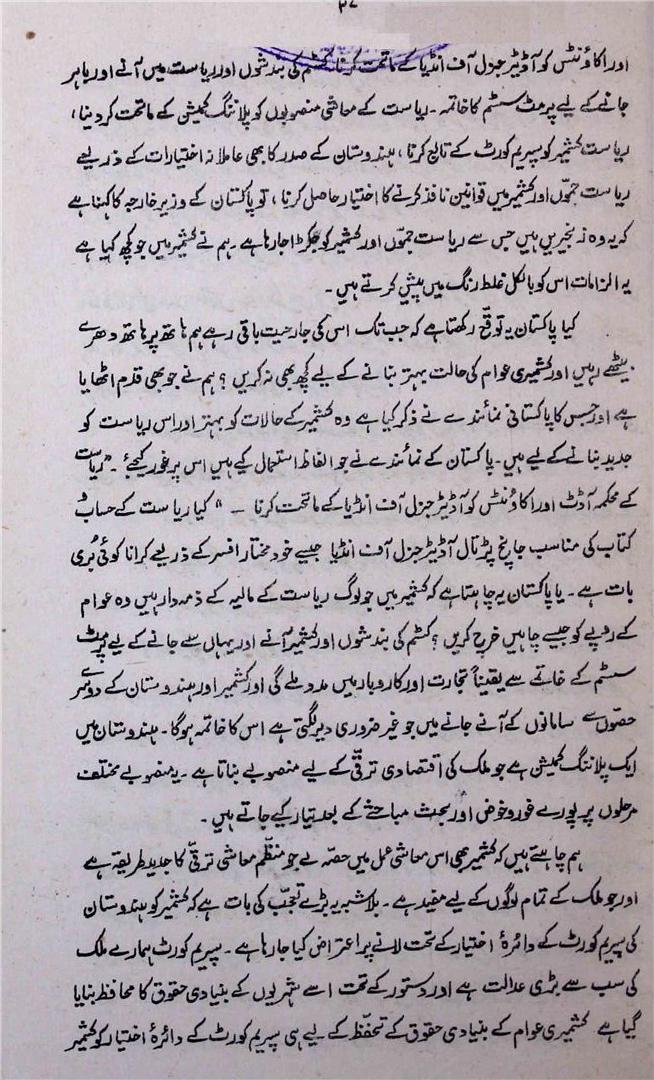 ۳۷
اور اکاؤنٹس کو آڈیٹر جرل آف انڈیا کے ماتحت کرنا کسٹم کی بندشوں اور ریاست میں آنے اور باہر
جانے کے لیے پرمٹ سسٹم کا خاتمہ۔ ریاست کے معاشی منصوبوں کو پلاننگ کمیشن کے ماتحت کر دینا،
ریاست کشمیر کو سپریم کورٹ کے تابع کرنا، ہندوستان کے صدر کا بھی عاملانہ اختیارات کے ذریعے
ریاست جموں اور کشمیر میں قوانین نافذ کرنے کا اختیار حاصل کرنا، تو پاکستان کے وزیر خارجہ کا کہنا ہے
کہ یہ وہ زنجیریں ہیں جس سے ریاست جموں اور کشمیر کو جکڑا جا رہا ہے۔ ہم نے کشمیر میں جو کچھ کیا ہے
یہ الزامات اس کو بالکل غلط رنگ میں پیش کرتے ہیں۔
کیا پاکستان یہ توقع رکھتا ہے کہ جب تک اس کی جارحیت باقی رہے ہم ہاتھ پر ہاتھ دھرے
بیٹھے رہیں اور کشمیری عوام کی حالت بہتر بنانے کے لیے کچھ بھی نہ کریں؟ ہم نے جو بھی قدم اٹھایا
ہے اور جس کا پاکستانی نمائندے نے ذکر کیا ہے وہ کشمیر کے حالات کو بہتر اور اس ریاست کو
جدید بنانے کے لیے ہیں۔ پاکستان کے نمائندے نے جو الفاظ استعمال کیے ہیں اس پر غور کیجئے۔ "ریاست
کے محکمہ آڈٹ اور اکاؤنٹس کو آڈیٹر جنرل آف انڈیا کے ماتحت کرنا ــ" کیا ریاست کے حساب
کتاب کی مناسب جانچ پڑتال آڈیٹر جنرل آف انڈیا جیسے خود مختار افسر کے ذریعے کرانا کوئی بُری
بات ہے۔ یا پاکستان یہ چاہتا ہے کہ کشمیر میں جو لوگ ریاست کے مالیہ کے ذمہ دار ہیں وہ عوام
کے روپے کو جیسے چاہیں خرچ کریں؟ کسٹم کی بندشوں اور کشمیر آنے اور یہاں سے جانے کے لیے پرمٹ
سسٹم کے خاتمے سے یقیناً تجارت اور کاروبار میں مدد ملے گی اور کشمیر اور ہندوستان کے دوسرے
حصوں سے سامانوں کے آنے جانے میں جو غیر ضروری دیر لگتی ہے اس کا خاتمہ ہوگا۔ ہندوستان میں
ایک پلاننگ کمیشن ہے جو ملک کی اقتصادی ترقی کے لیے منصوبے بناتا ہے۔ یہ منصوبے مختلف
مرحلوں پر پورے غور و خوض اور بحث مباحثے کے بعد تیار کیے جاتے ہیں۔
ہم چاہتے ہیں کہ کشمیر بھی اس معاشی عمل میں حصہ لے جو منظم معاشی ترقی کا جدید طریقہ ہے
اور جو ملک کے تمام لوگوں کے لیے مفید ہے۔ بلاشبہ یہ بڑے تعجب کی بات ہے کہ کشمیر کو ہندوستان
کی سپریم کورٹ کے دائرۂ اختیار کے تحت لانے پر اعتراض کیا جا رہا ہے۔ سپریم کورٹ ہمارے ملک
کی سب سے بڑی عدالت ہے اور دستور کے تحت اسے شہریوں کے بنیادی حقوق کا محافظ بنایا
گیا ہے کشمیری عوام کے بنیادی حقوق کے تحفظ کے لیے ہی سپریم کورٹ کے دائرۂ اختیار کو کشمیر